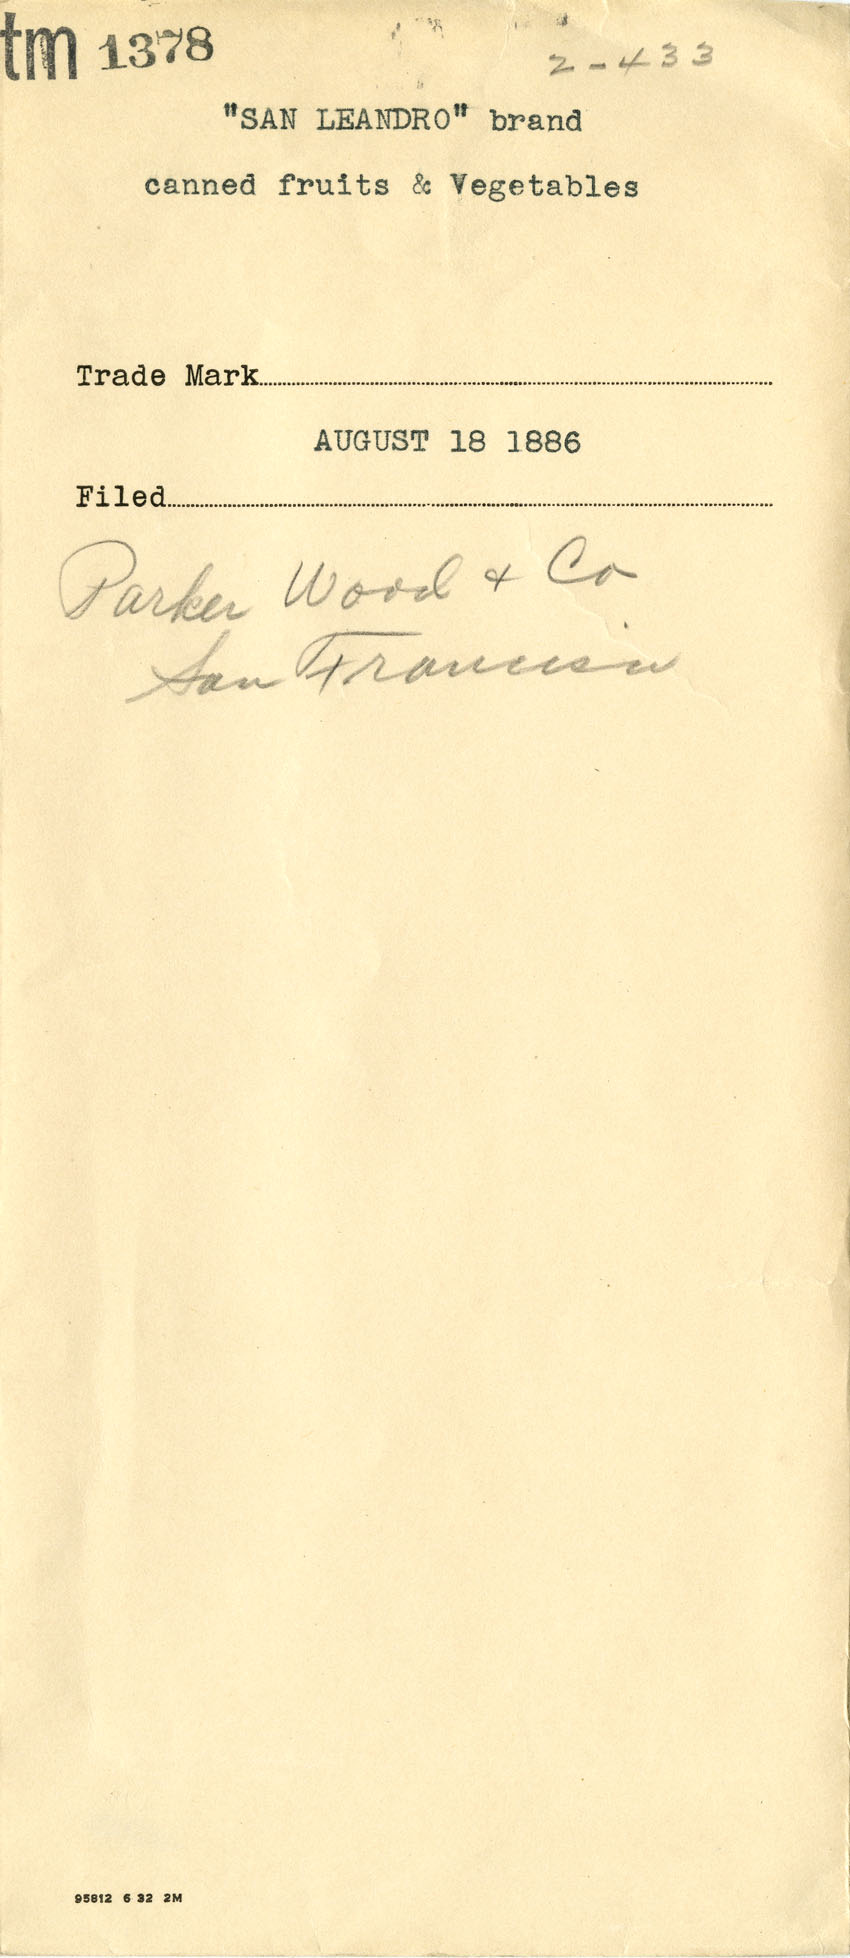 tm 1378 2-433
"SAN LEANDRO" brand
canned fruits & Vegetables
Trade Mark
AUGUST 18 1886
Filed
Parker Wood & Co
San Francisco
95812 6 32 2M